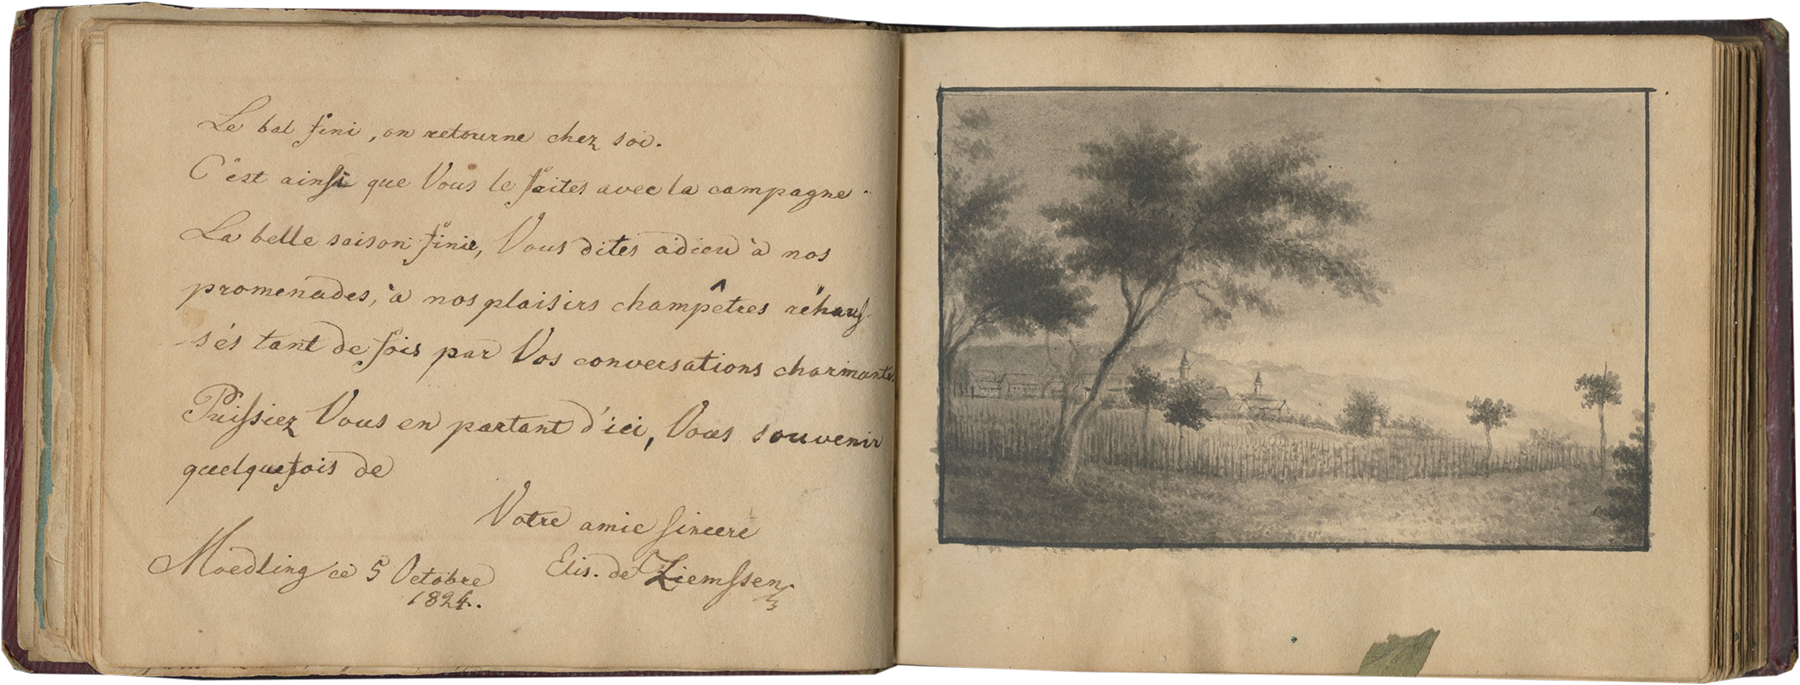 Le bal fini, on retourne chez soi.
C'est ainsi que Vous le faites avec la campagne.
La belle saison finie, Vous dites adieu à nos
promenades, à nos plaisirs champêtres réhaus-
sés tant de fois par Vos conversations charmantes.
Puissiez Vous en partant d'ici, Vous souvenir
quelquefois de
Votre amie sincere
Moedling ce 5 Octobre
1824.
Elis. de Ziemssen.